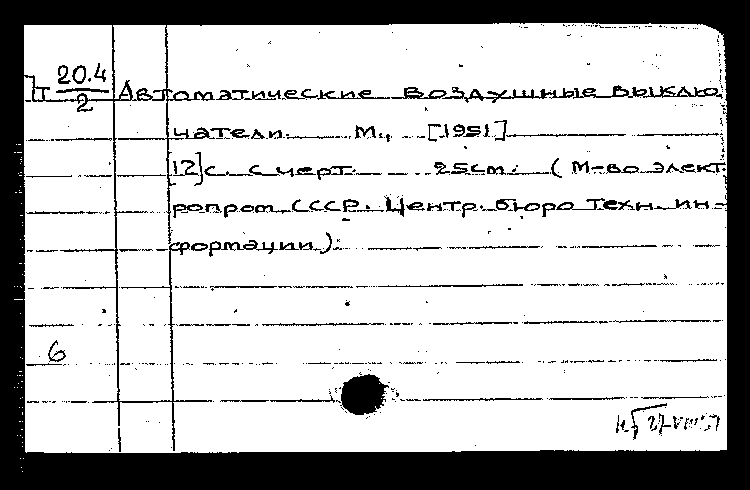 Т 20.4/2 Автоматические воздушные выклю
чатели. М., [1951]
[12]с. с черт. 25см. (М-во элект
ропром. СССР. Центр. бюро техн. ин-
формации).
6